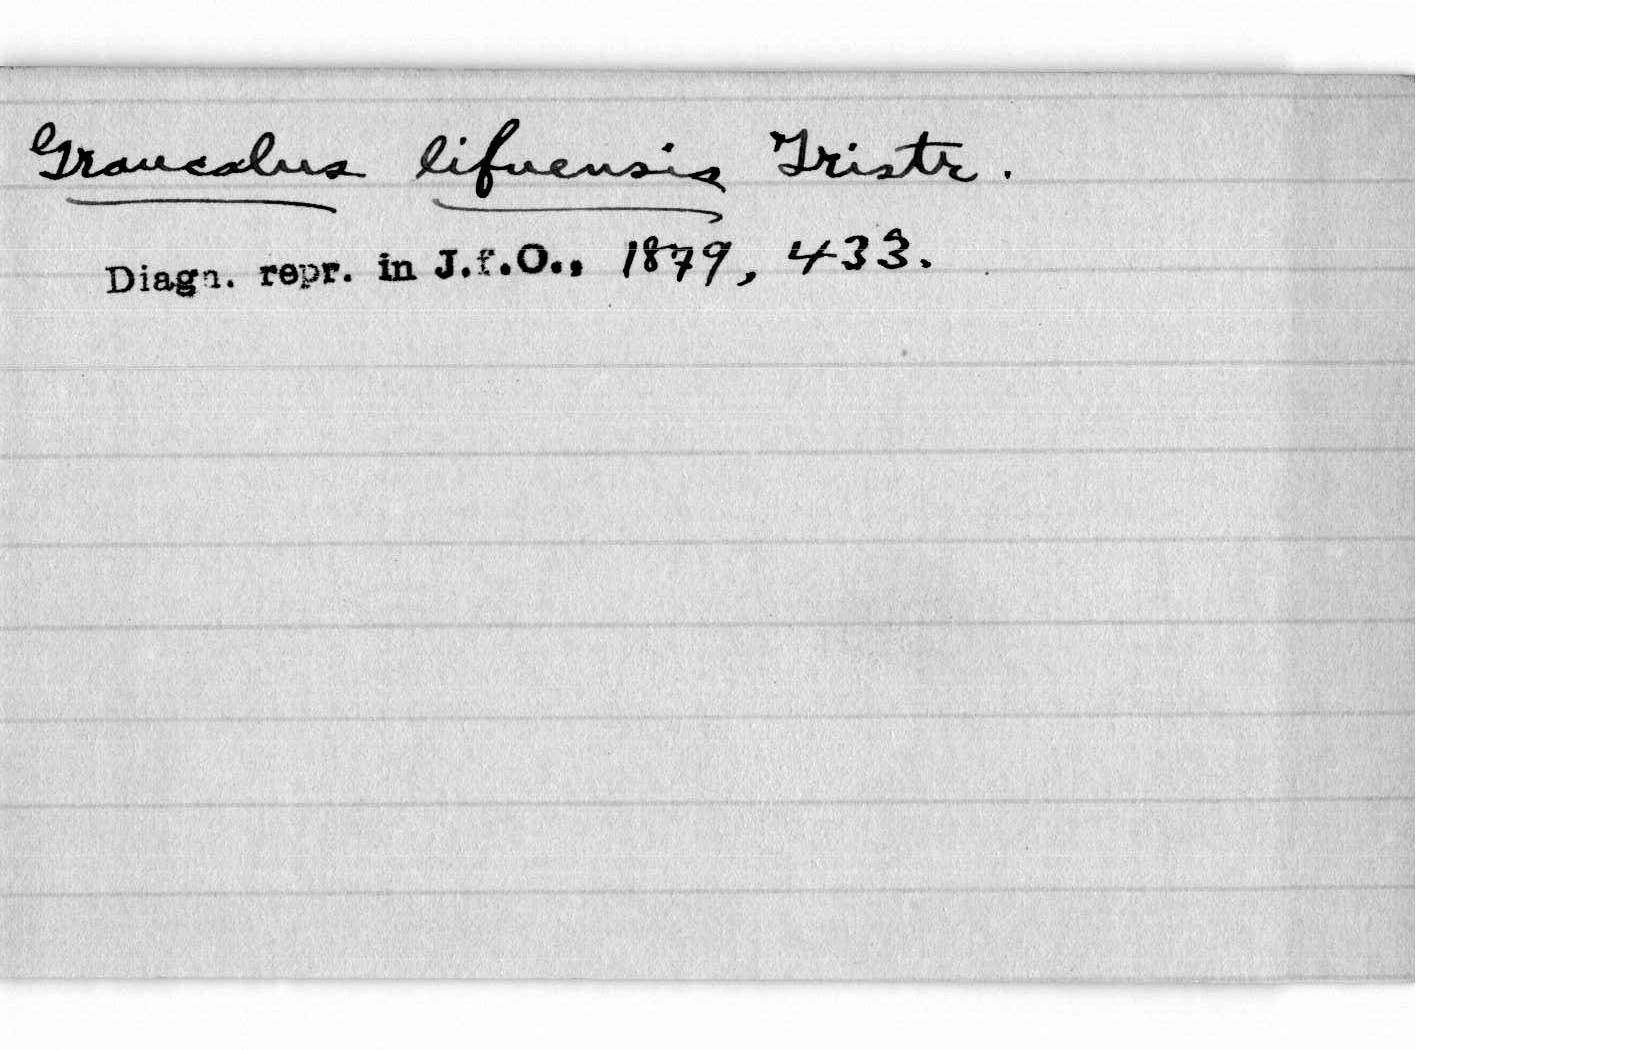 Graucalus lifuensis Tristr.
Diagn. repr. in J.f.O., 1879, 433.